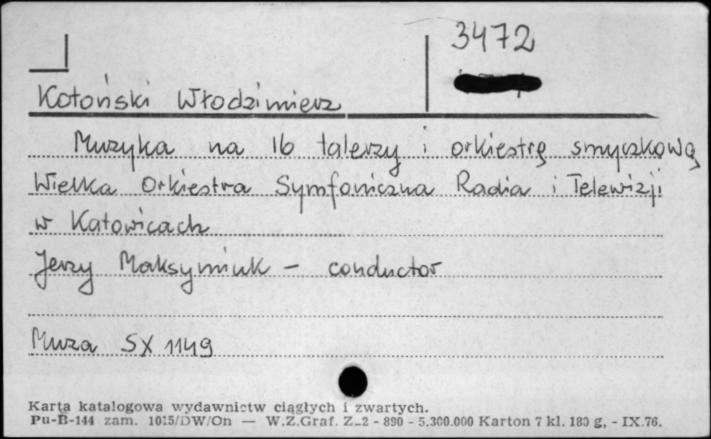 3472
Kotoński Włodzimierz
Muzyka na 16 talerzy i orkiestrę smyczkową
Wielka Orkiestra Symfoniczna Radia i Telewizji
w Katowicach
Jerzy Maksymiuk - conductor
Muza SX 1149
Karta katalogowa wydawnictw ciągłych i zwartych.
Pu-B-144 zam. 1015/DW/On — W.Z.Graf. Z-2 - 890 - 5.300.000 Karton 7 kl. 180 g, - IX.76.